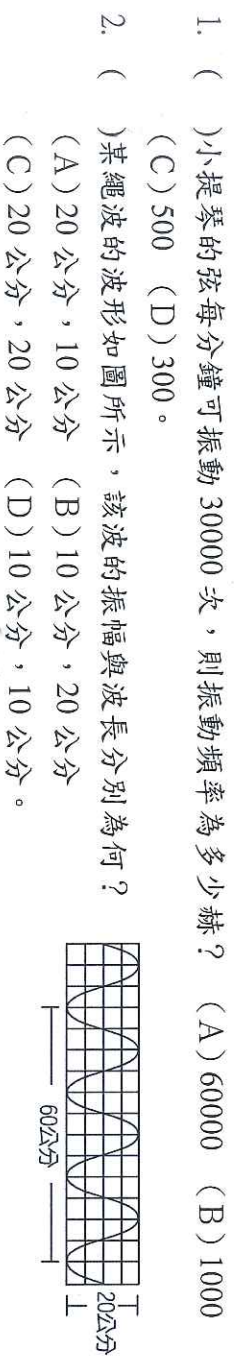 1. (　)小提琴的弦每分鐘可振動 30000 次，則振動頻率為多少赫？ (A) 60000 (B) 1000
(C) 500 (D) 300。
2. (　)某繩波的波形如圖所示，該波的振幅與波長分別為何？
(A) 20 公分，10 公分 (B) 10 公分，20 公分
(C) 20 公分，20 公分 (D) 10 公分，10 公分。
20公分
60公分